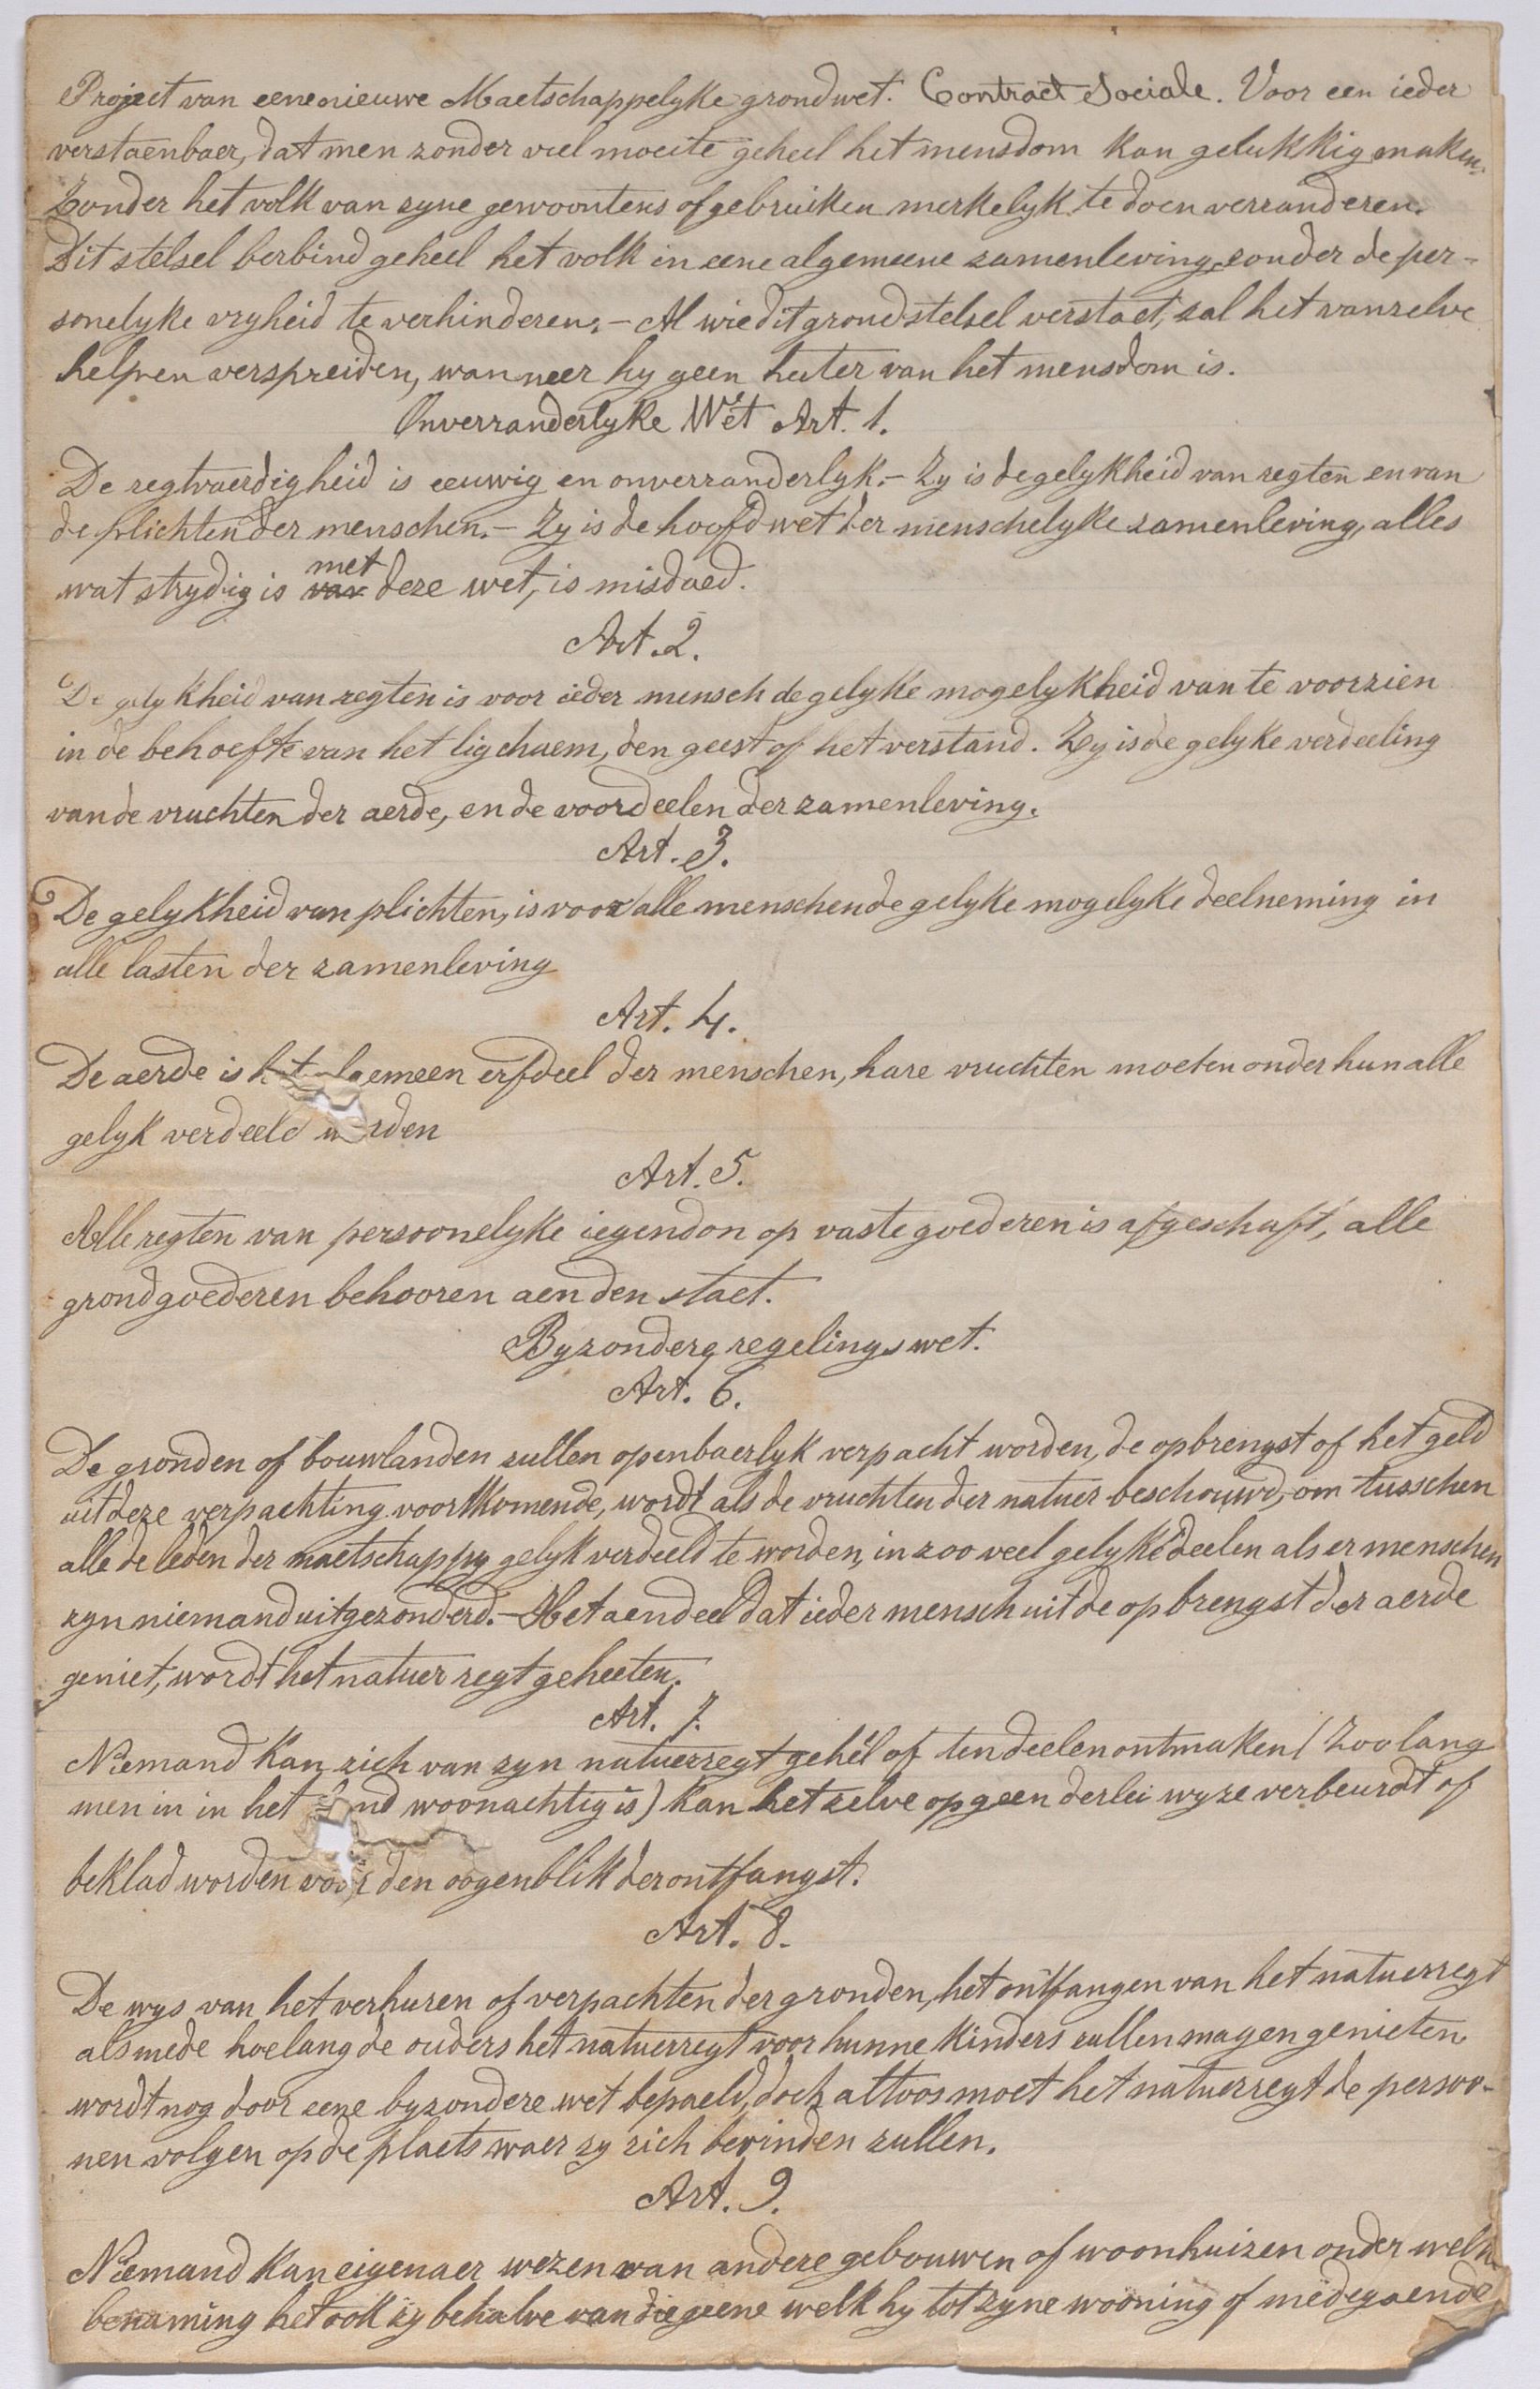 Project van eene nieuwe Maetschappelyke grondwet. Contract Sociale. Voor een ieder
verstaenbaer, dat men zonder veel moeite geheel het mensdom kan gelukkig maken.
Zonder het volk van zyne gewoontens of gebruiken merkelyk te doen verranderen.
Dit stelsel verbind geheel het volk in eene algemeene zamenleving, zonder de per-
sonelyke vryheid te verhinderen. - Al wie dit grondstelsel verstaet, zal het vanzelve
helpen verspreiden, wanneer hy geen hater van het mensdom is.
Onverranderlyke Wet Art. 1.
De regtvaerdigheid is eeuwig en onverranderlyk. - Zy is de gelykheid van regten en van
de plichten der menschen. - Zy is de hoofdwet der menschelyke zamenleving, alles
wat strydig is met deze wet, is misdaed.
Art. 2.
De gelykheid van regten is voor ieder mensch de gelyke mogelykheid van te voorzien
in de behoefte van het ligchaem, den geest of het verstand. Zy is de gelyke verdeeling
van de vruchten der aerde, en de voordeelen der zamenleving.
Art. 3.
De gelykheid van plichten, is voor alle menschen de gelyke mogelyke deelneming in
alle lasten der zamenleving
Art. 4.
De aerde is het algemeen erfdeel der menschen, hare vruchten moeten onder hun alle
gelyk verdeeld worden
Art. 5.
Alle regten van persoonelyke iegendon op vaste goederen is afgeschaft, alle
grondgoederen behooren aen den staet.
Byzondere regelings wet.
Art. 6.
De gronden of bouwlanden zullen openbaerlyk verpacht worden, de opbrengst of het geld
uit deze verpachting voortkomende, wordt als de vruchten der natuer beschouwd, om tusschen
alle de leden der maetschappy gelyk verdeeld te worden, in zoo veel gelyke deelen als er menschen
zyn niemand uitgezonderd. - Het aendeel dat ieder mensch uit de opbrengst der aerde
geniet, wordt het natuer regt geheeten.
Art. 7.
Niemand kan zich van zyn natuerregt geheel of ten deelen ontmaken (Zoo lang
men in in het land woonachtig is) kan het zelve op geenderlei wyze verbeurdt of
beklad worden voor den oogenblik der ontfangst.
Art. 8.
De wys van het verhuren of verpachten der gronden, het ontfangen van het natuerregt
alsmede hoelang de ouders het natuerregt voor hunne kinders zullen magen genieten
wordt nog door eene byzondere wet bepaeld, doch altoos moet het natuerregt de persoo-
nen volgen op de plaets waer zy zich bevinden zullen.
Art. 9.
Niemand kan eigenaer wezen van andere gebouwen of woonhuizen onder welk
benaming het ook zy behalve van diegeene welk hy tot zyne wooning of medegaende